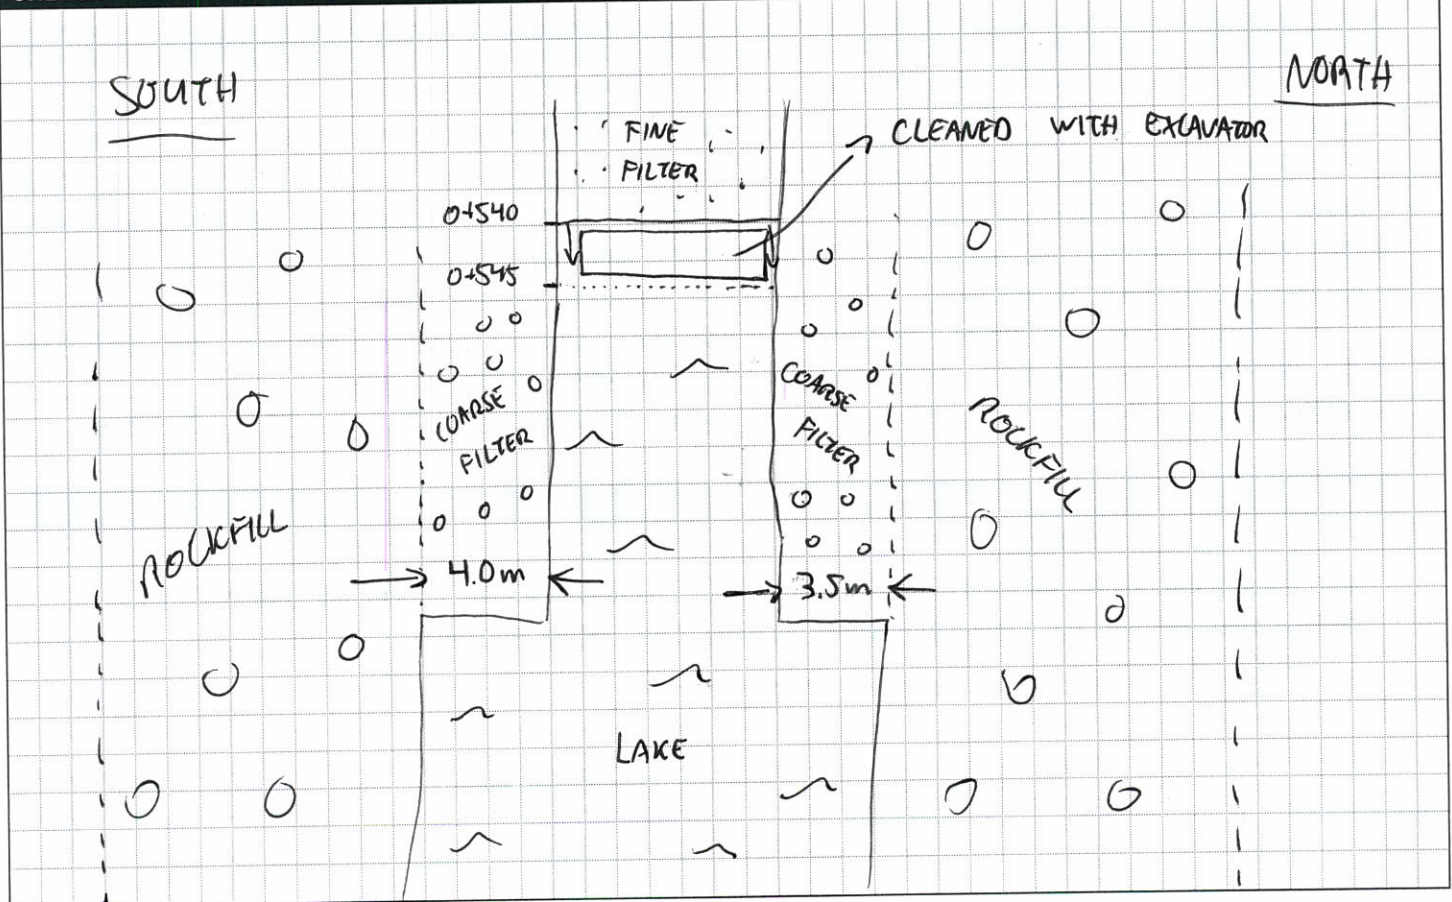 SOUTH
NORTH
FINE
FILTER
CLEANED WITH EXCAVATOR
0+540
0+545
COARSE
FILTER
COARSE
FILTER
ROCKFILL
ROCKFILL
4.0m
3.5m
LAKE